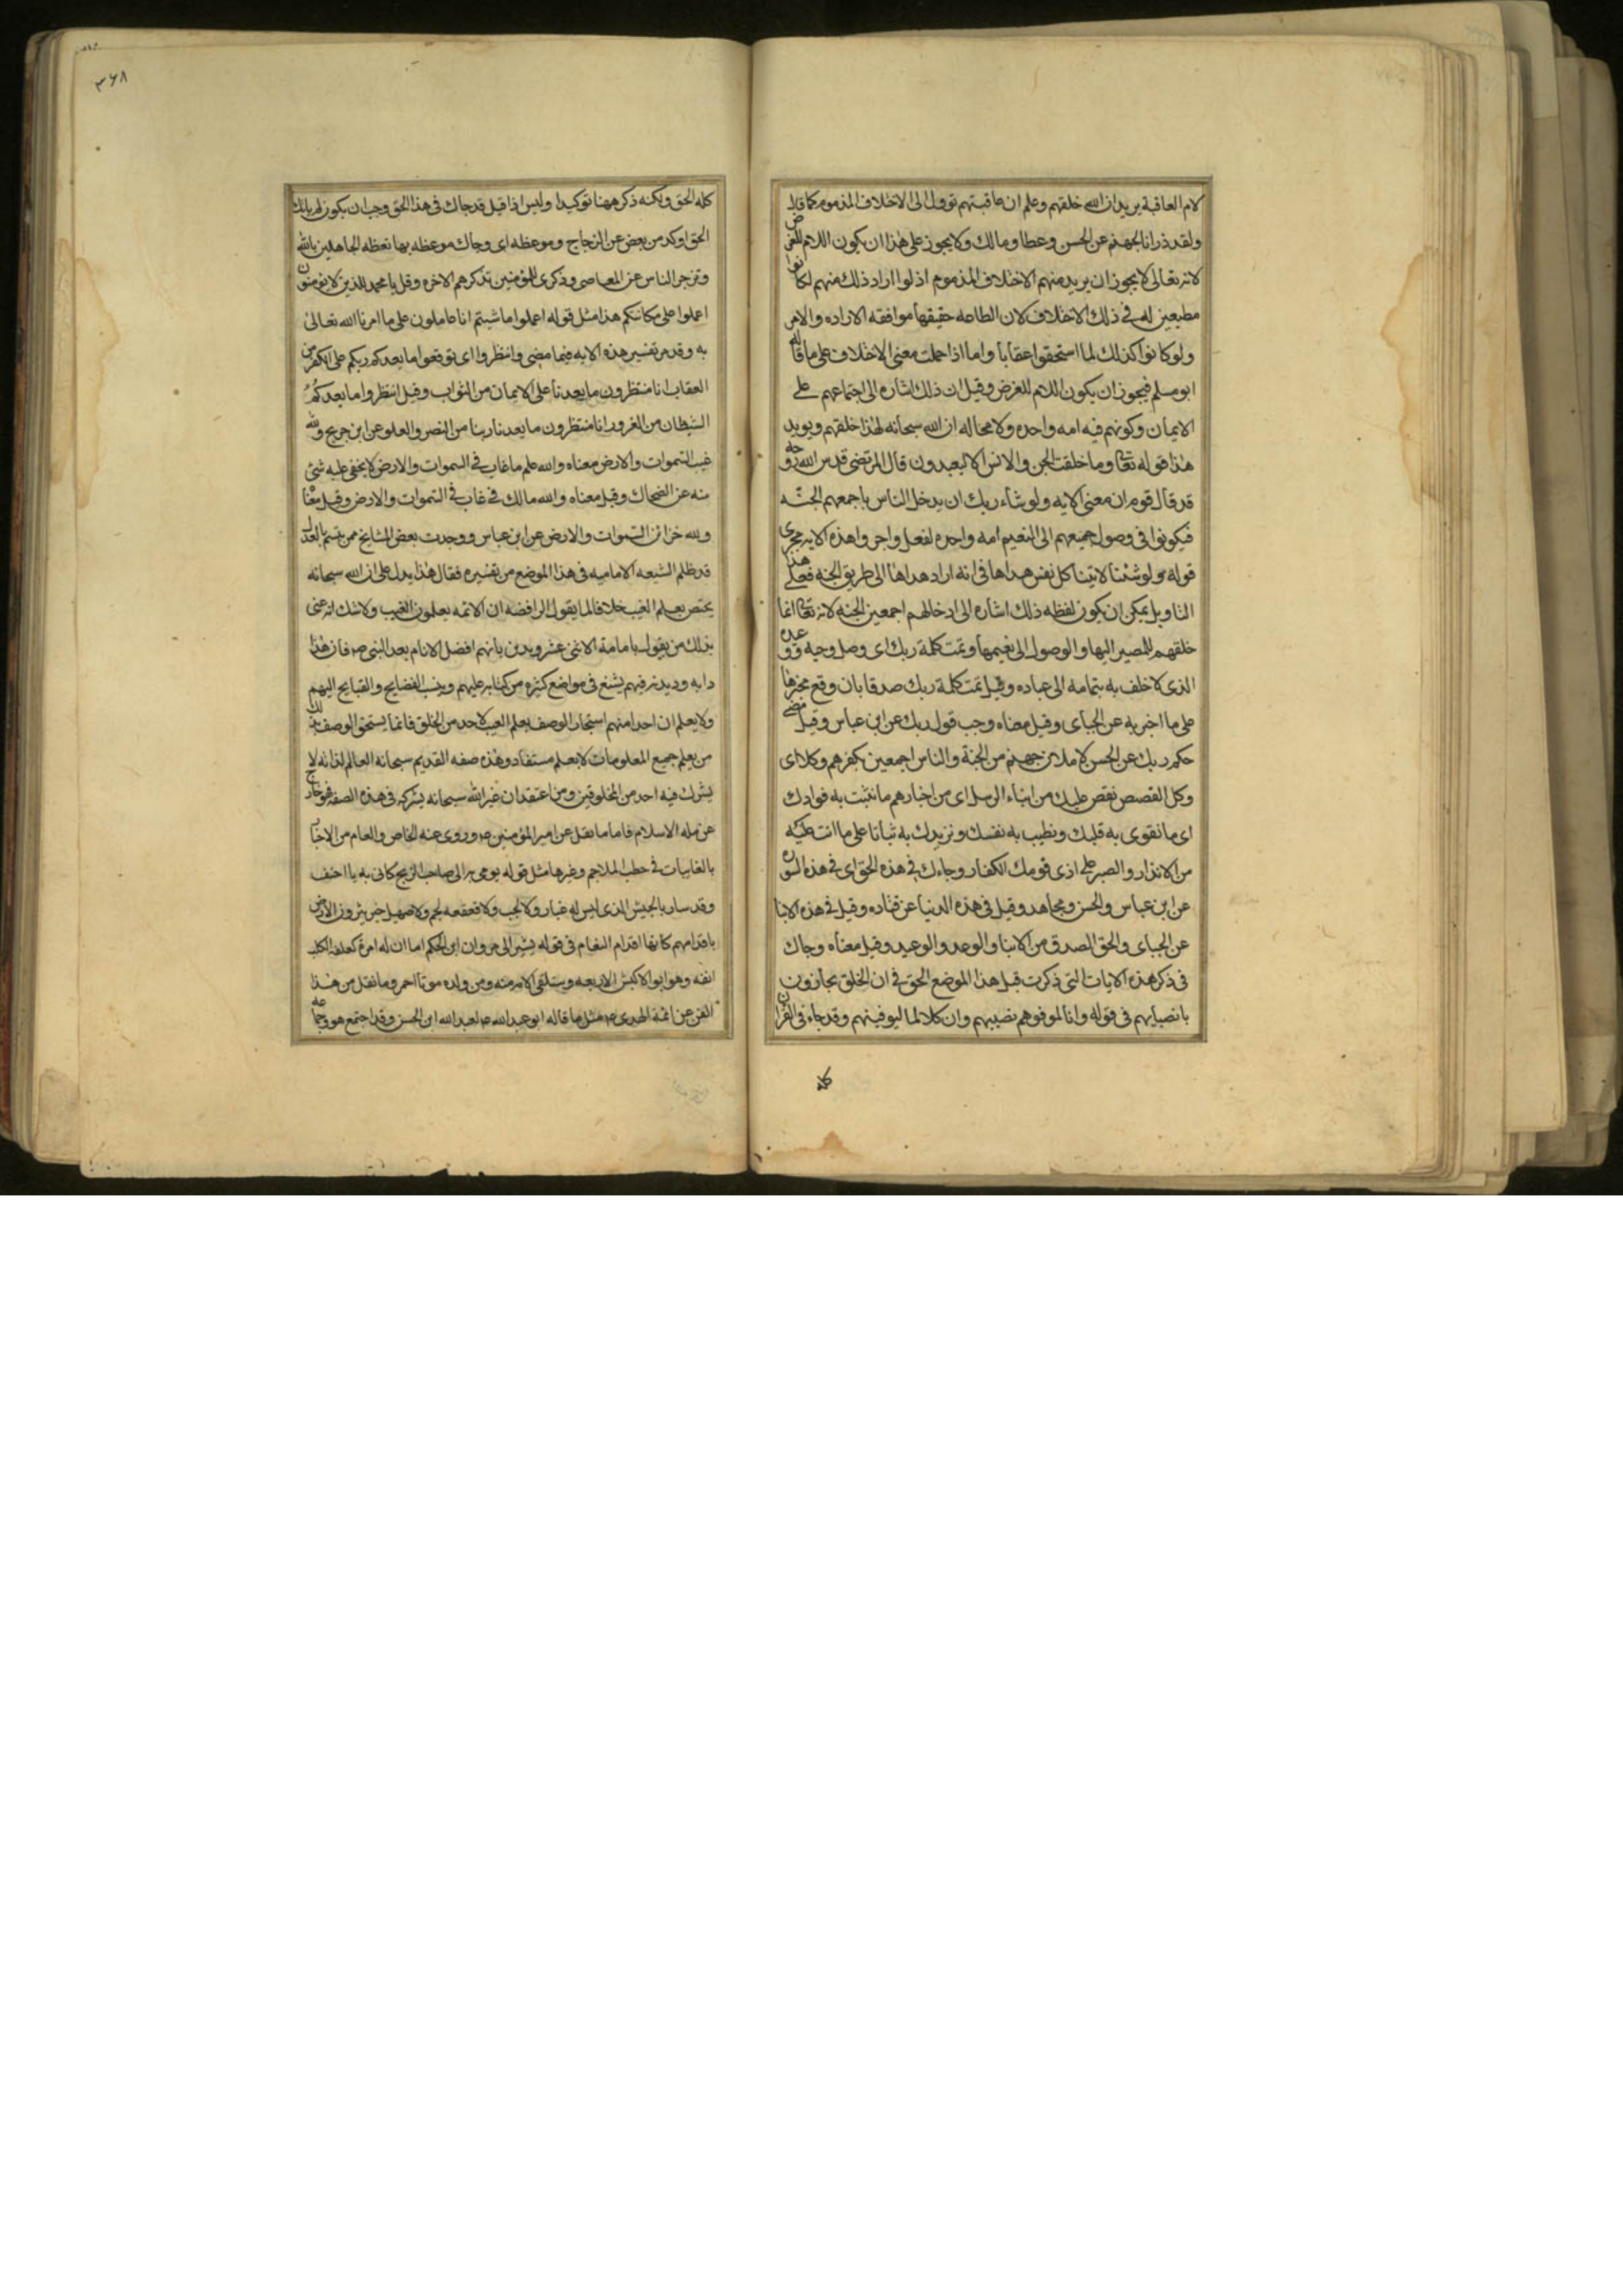 لام العاقبة يريد ان الله خلقهم وعلم ان عاقبتهم تؤول الى الاختلاف المذموم كما قال
ولقد ذرانا لجهنم عن الحسن وعطا ومالك ولا يجوز على هذا ان يكون اللام للغرض
لانه تعالى لا يجوز ان يريد منهم الاختلاف المذموم اذ لو اراد ذلك منهم لكانوا
مطيعين له في ذلك الاختلاف لان الطاعه حقيقتها موافقه الاراده والامر
ولو كانوا كذلك لما استحقوا عقابا واما اذا حملت معنى الاختلاف على ما قاله
ابو مسلم فيجوز ان يكون اللام للغرض وقيل ان ذلك اشاره الى اجتماعهم على
الايمان وكونهم فيه امه واحده ولا محاله ان الله سبحانه لهذا خلقهم ويويد
هذا قوله تعا وما خلقت الجن والانس الا ليعبدون قال المرتضى قدس الله روحه
قد قال قوم ان معنى الايه ولو شاء ربك ان يدخل الناس باجمعهم الجنه
فيكونوا في وصول جميعهم الى النعيم امه واحده لفعل واجرواهذه الايه مجرى
قوله ولو شئنا لاتينا كل نفس هداها في انه اراد هداها الى طريق الجنه فعلى هذا
التاويل يمكن ان يكون لفظه ذلك اشاره الى ادخالهم اجمعين الجنه لانه تعا انما
خلقهم للمصير اليها والوصول الى نعيمها وتمت كلمة ربك اى وصل وحيه ووعده
الذى لا خلف به بتمامه الى عباده وقيل تمت كلمة ربك صدقا بان وقع مخبرها
على ما اخبر به عن الجباى وقيل معناه وجب قول ربك عن ابن عباس وقيل مضى
حكم ربك عن الحسن لاملان جهنم من الجنة والناس اجمعين بكفرهم وكلا اى
وكل القصص نقص عليك من انباء الرسل اى من اخبارهم ما نثبت به فوادك
اى ما نقوى به قلبك ونطيب به نفسك ونزيدك به ثباتا على ما انت عليه
من الانذار والصبر على اذى قومك الكفار وجاءك في هذه الحق اى في هذه السوره
عن ابن عباس والحسن ومجاهد وقيل في هذه الدنيا عن قتاده وقيل في هذه الانبا
عن الجباى والحق الصدق من الانبا والوعد والوعيد وقيل معناه وجاك
في ذكر هذه الايات التى ذكرت قبل هذا الموضع الحق في ان الخلق يجازون
بانصبايهم في قوله وانا لموفوهم نصيبهم وان كلا لما ليوفينهم وقد جاء في القران
كله
٣٦٨
كله الحق ولكنه ذكر ههنا توكيدا وليس اذا قيل قد جاك في هذا الحق وجب ان يكون لم ياتك
الحق اوكد من بعض عن الزجاج وموعظه اى وجاك موعظه بها تعظه الجاهلين بالله
وتزجر الناس عن المعاصى وذكرى للمؤمنين تذكرهم الاخره وقل يا محمد للذين لا يؤمنون
اعملوا على مكانتكم هذا مثل قوله اعملوا ما شئتم انا عاملون على ما امرنا الله تعالى
به وقد مر تفسير هذه الايه فيما مضى وانتظروا اى توقعوا ما يعدكم ربكم على الكفر من
العقاب انا منتظرون ما يعدنا على الايمان من الثواب وقيل انتظروا ما يعدكم
الشيطان من الغرور انا منتظرون ما يعدنا ربنا من النصر والعلو عن ابن جريج ولله
غيب السموات والارض معناه والله علم ما غاب في السموات والارض لا يخفى عليه شئ
منه عن الضحاك وقيل معناه والله مالك في غاب في السموات والارض وقيل معنا
ولله خزائن السموات والارض عن ابن عباس ووجدت بعض المشايخ ممن يتسم بالعدل
قد ظلم الشيعه الاماميه في هذا الموضع من تفسيره فقال هذا يدل على ان الله سبحانه
يختص بعلم الغيب خلافا لما يقول الرافضه ان الائمه يعلمون الغيب ولا شك انه عنى
بذلك من يقول بامامة الاثنى عشر ويدين بانهم افضل الانام بعد النبى ص فان هذا
دابه وديدنه فيهم يشنع في مواضع كثيره من كتابه عليهم وينسب الفضايح والقبايح اليهم
ولا يعلم ان احدا منهم استجاز الوصف بعلم الغيب لاحد من الخلق فانما يستحق الوصف بذلك
من يعلم جميع المعلومات لا بعلم مستفاد وهذه صفه القديم سبحانه العالم لذاته لا
يشرك فيه احد من المخلوقين ومن اعتقد ان غير الله سبحانه يشركه في هذه الصفه فهو خارج
عن مله الاسلام فاما ما نقل عن امير المؤمنين ع وروى عنه الخاص والعام من الاخبار
بالغايبات في خطب الملاحم وغيرها مثل قوله يومى به الى صاحب الزنج كانى به يا احنف
وقد سار بالجيش الذى ليس له غبار ولا لجب ولا قعقعه لجم ولا صهيل خيل يثيرون الارض
باقدامهم كانها اقدام النعام في قوله يشير الى مروان ابن الحكم اما ان له امرة كلعقه الكلب
انفه وهو ابو الاكبش الاربعه وستلقى الامه منه ومن ولده موتا احمر وما نقل من هذا
الفن عن ائمة الهدى ع مثل ما قاله ابو عبد الله ع لعبد الله ابن الحسن وقد اجتمع هو وجماعه